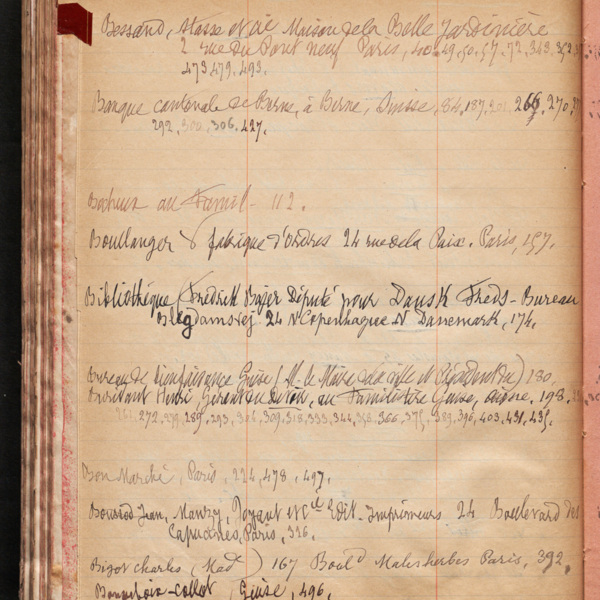 Bessand, Stasse et Cie Maison de la Belle Jardinière
2 rue du Pont neuf Paris, 40.49.50.57.72.343.352
473.479.493.
Banque cantonale de Berne, à Berne, Suisse, 84.187. 266.270.
292.300.306.427.
au Famil- 112.
Boullanger fabrique d'ordres 24 rue de la Paix. Paris, 157.
Bibliothèque (Fredrik Bajer Député pour Dansk Freds-Bureau
Blegdamsvej 24 N Copenhague N Danemark, 174.
Bureau de bienfaisance Guise (M. le Maire de la ville et Président du) 180.
Buridant Henri, Gérant du, au Familistère Guise, Aisne, 198.
272.279.289.293.306.309.318.333.344.358.366.375.389.396.403.431.435.
Bon Marché, Paris, 224,478,497.
Boussod Jean, Manzy, Joyant et Cie Edit-Imprimeurs 24 Boulevard des
Capucines, Paris, 326.
Bigot Charles (Mad ) 167 Bould Malesherbes Paris, 392.
Guise, 496.